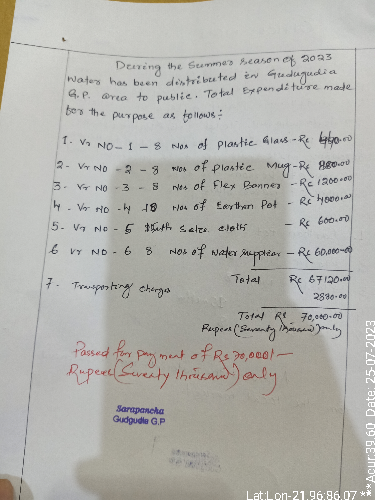 During the Summer season of 2023
Water has been distributed in Gudugudia
G.P. area to public. Total Expenditure made
for the purpose as follows:-
1- Vr NO - 1 - 8 Nos of Plastic Glass - Rs 440.00
2- Vr NO - 2 - 8 Nos of Plastic Mug - Rs 880.00
3- Vr NO - 3 - 8 Nos of Flex Banner - Rs 1200.00
4- Vr NO - 4 - 18 Nos of Earthen Pot - Rs 4000.00
5- Vr NO - 5 cloth - Rs 600.00
6 Vr NO - 6 8 Nos of Water supplier - Rs 60,000.00
Total Rs 67120.00
7- Transporting charges 2880.00
Total Rs 70,000.00
Rupees (Seventy thousand) only
Passed for payment of Rs 70,000/-
Rupees (Seventy thousand) only
Sarapancha
Gudgudia G.P
Lat:Lon-21.96:86.07 *** Acur:39.60, Date: 25-07-2023